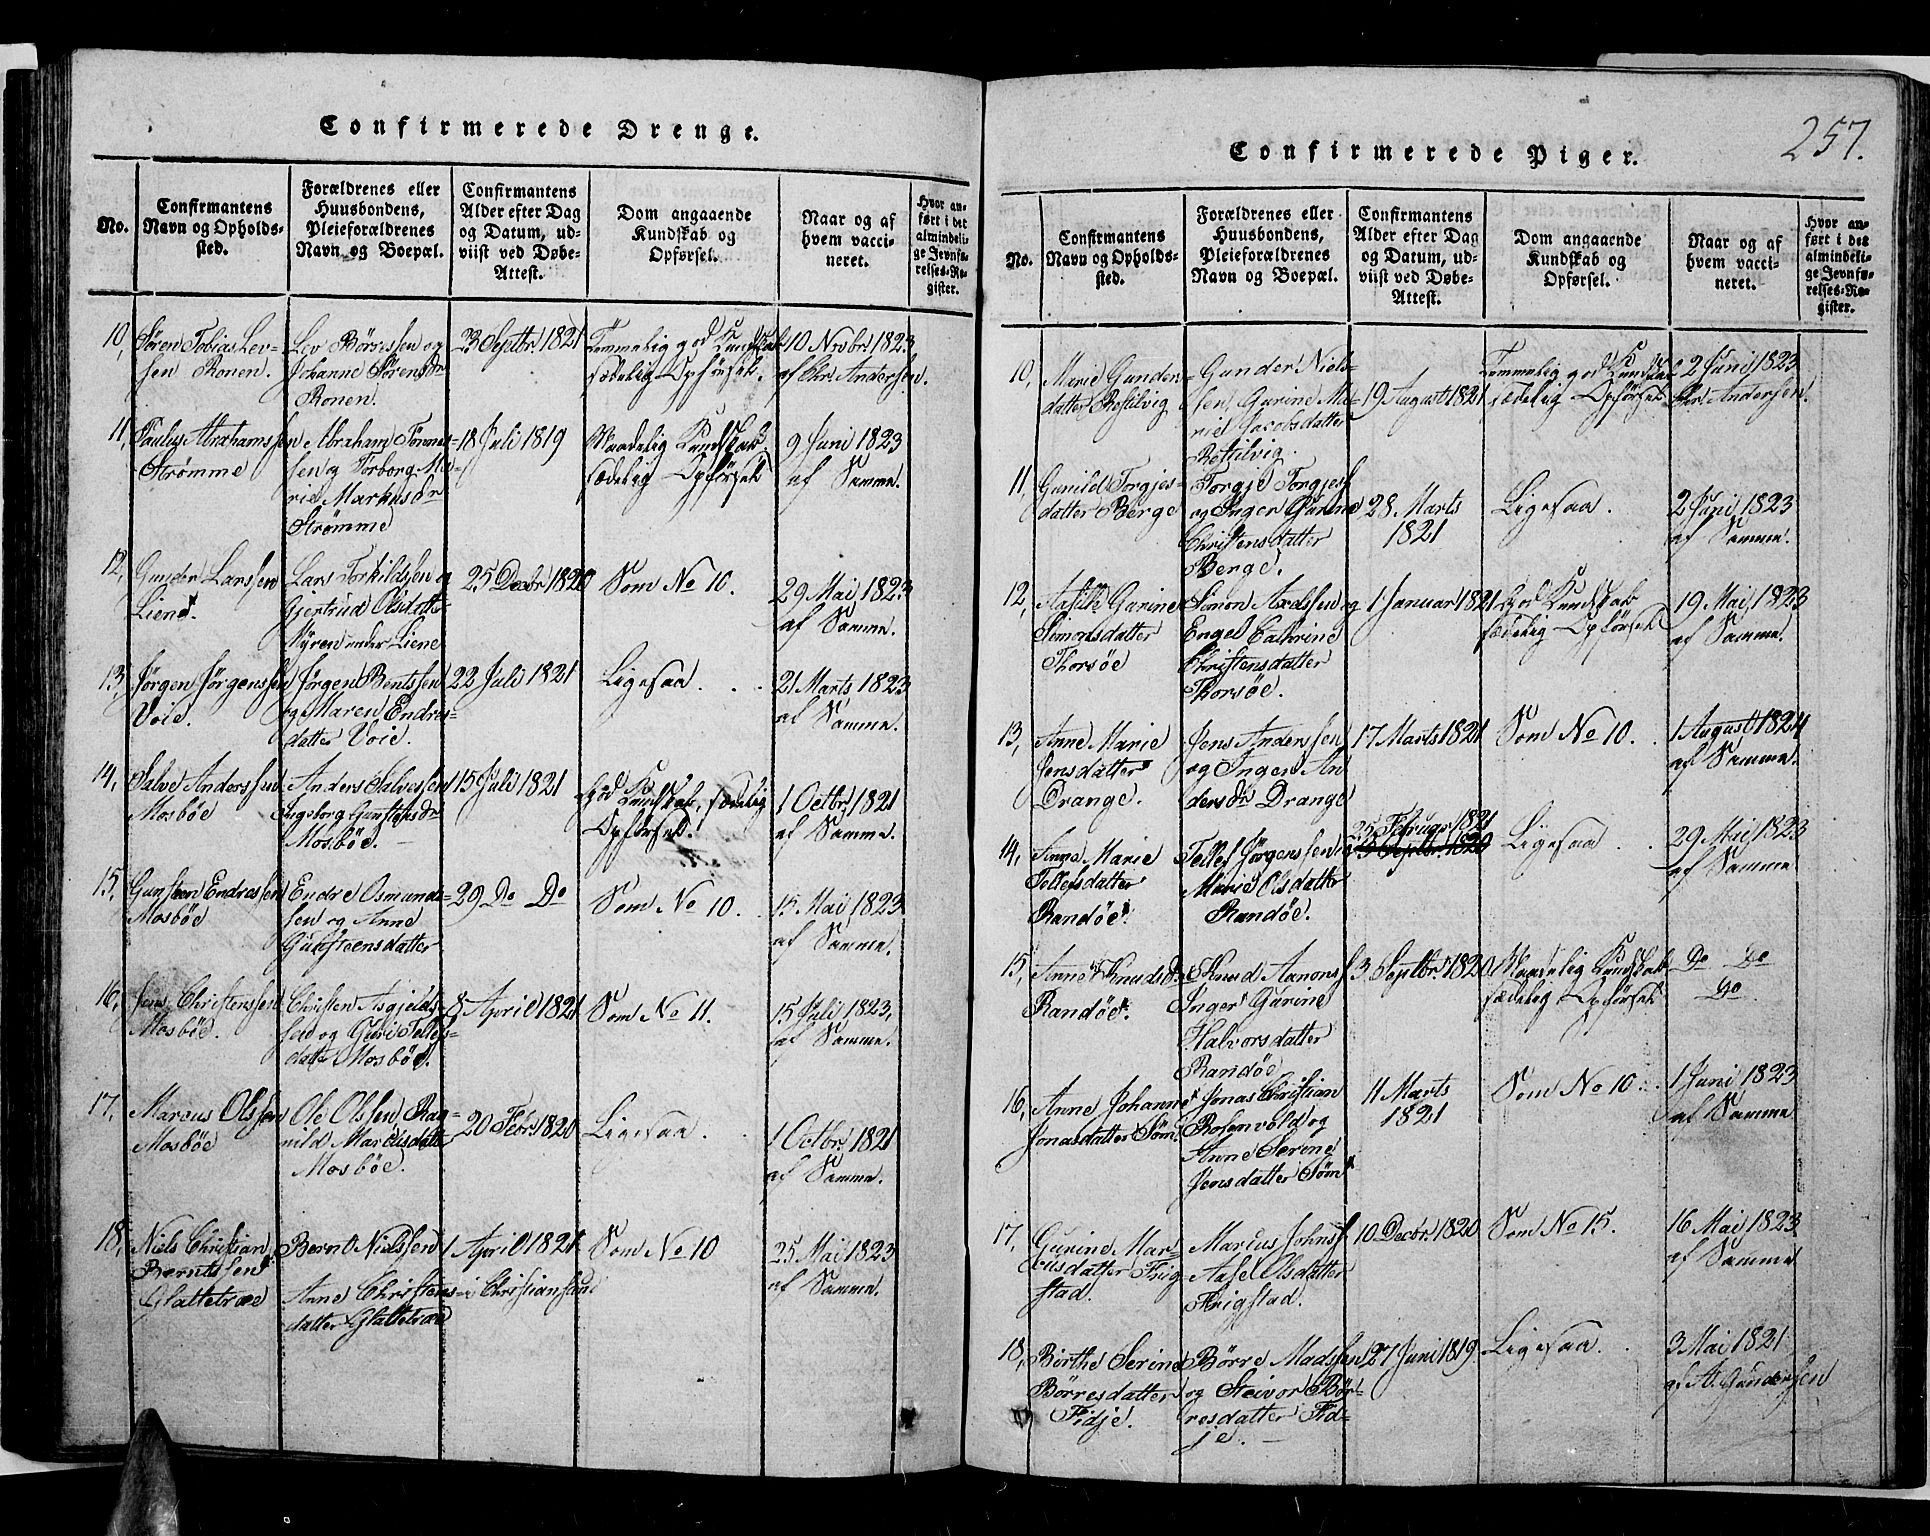 Confirmerede Drenge.
No.
Confirmantens
Navn og Opholds-
sted.
Forældrenes eller
Huusbondens,
Pleieforældrenes
Navn og Boepæl.
Confirmantens
Alder efter Dag
og Datum, ud-
viist ved Døbe-
Attest.
Dom angaaende
Kundskab og
Opførsel.
Naar og af
hvem vacci-
neret.
Hvor an-
ført i det
almindeli-
ge Jevnfø-
relses-Re-
gister.
10,
Søren Tobias Lev-
sen Ronen.
Lev Børresen og
Johanne Sørensdr
Ronen.
23 Septbr. 1821
Temmelig god Kundskab
sædelig Opførsel.
10 Novbr. 1823
af Chr. Andersen.
11,
Paulus Abrahamssen
Strømme
Abraham Tønnes-
sen og Torborg Ma-
rie Markusdr
Strømme
18 Juli 1819
Maadelig Kundskab
sædelig Opførsel
9 Juni 1823
af Samme.
12,
Gunder Larssen
Liene.
Lars Torkildsen og
Gjertrud Olsdatter
Myren under Liene
25 Decbr 1820
Som No 10.
29 Mai 1823
af Samme.
13,
Jørgen Jørgenssen
Voie.
Jørgen Bentssen
og Maren Endres-
datter Voie.
22 Juli 1821
Ligesaa . .
21 Marts 1823
af Samme.
14,
Salve Anderssen
Mosbøe
Anders Salvessen
Ingeborg Gunstensdr
Mosbøe.
15 Juli 1821
God Kundskab, sædelig
Opførsel.
1 Octbr. 1821
af Samme.
15,
Gunsteen Endressen
Mosbøe
Endre Osmunds-
sen og Anne
Gunsteensdatter
29 Do Do
Som No 10.
15. Mai 1823
af Samme.
16,
Jens Christenssen
Mosbøe.
Christen Asgjelds-
sen og Guri Tellefs-
datter Mosbøe.
8 April 1821
Som No 11.
15 Juli 1823,
af Samme.
17,
Marcus Olssen
Mosbøe
Ole Olssen Rag-
nild Marcusdatter
Mosbøe.
20 Febr. 1820
Ligesaa . .
1 Octbr. 1821
af Samme.
18,
Niels Christian
Berntssen
Glattetræe
Bernt Nielssen
Anne Christens-
datter Glattetræe
1 April 1821
i Christiansand
Som No 10
25. Mai 1823
af Samme.
257.
Confirmerede Piger.
No.
Confirmantens
Navn og Opholds-
sted.
Forældrenes eller
Huusbondens,
Pleieforældrenes
Navn og Boepæl.
Confirmantens
Alder efter Dag
og Datum, ud-
viist ved Døbe-
Attest.
Dom angaaende
Kundskab og
Opførsel.
Naar og af
hvem vacci-
neret.
Hvor an-
ført i det
almindeli-
ge Jevnfø-
relses-Re-
gister.
10,
Marie Gunder-
datter Røstilvig
Gunder Niels-
sen, Gurine Ma-
rie Jacobsdatter
Røstilvig.
19 August 1821
Temmelig god Kundskab
sædelig Opførsel
2 Juni 1823
Chr. Andersen.
11,
Gunild Torgjes-
datter Berge
Torgje Torgjes
og Inger Gurine
Christensdatter
Berge.
28 Marts
1821
Ligesaa .
2 Juni 1823
af Samme.
12,
Aasille Gurine
Simonsdatter
Thorsøe
Simon Axelssen og
Engel Cathrine
Christensdatter
Thorsøe.
1 Januar 1821
God Kundskab
sædelig Opførsel
19 Mai, 1823
af Samme.
13,
Anne Marie
Jensdatter
Drange.
Jens Anderssen
og Inger An
dersdr Drange
17 Marts 1821
Som No 10. .
1 August 1824
af Samme.
14,
Anne Marie
Tellefsdatter
Randøe.
Tellef Jørgenssen
Marie Olsdatter
Randøe.
25 Februar 1821
3 Septbr. 1820
Ligesaa . .
29 Mai 1823
af Samme.
15,
Anne Knudsdr
Randøe.
Knud Aanons
Inger Gurine
Halvorsdatter
Randøe
3 Septbr. 1820
Maadelig Kundskab
sædelig Opførsel
Do Do
Do.
16,
Anne Johanne
Jonasdatter Søm.
Jonas Christian
Rosenvold og
Anne Serine
Jensdatter Søm
11 Marts
1821
Som No 10 . .
1 Juni 1823
af Samme
17,
Gurine Mar-
cusdatter Frig
stad.
Marcus Johns
Aase Olsdatter
Frigstad.
10 Decbr. 1820
Som No 15.
16 Mai 1823
af Samme
18,
Børthe Serine
Børresdatter
Fidje.
Børre Madssen
og Steivor Bør-
resdatter Fid-
je.
27 Juni 1819.
Ligesaa. .
3 Mai 1821
af A. Gundersen